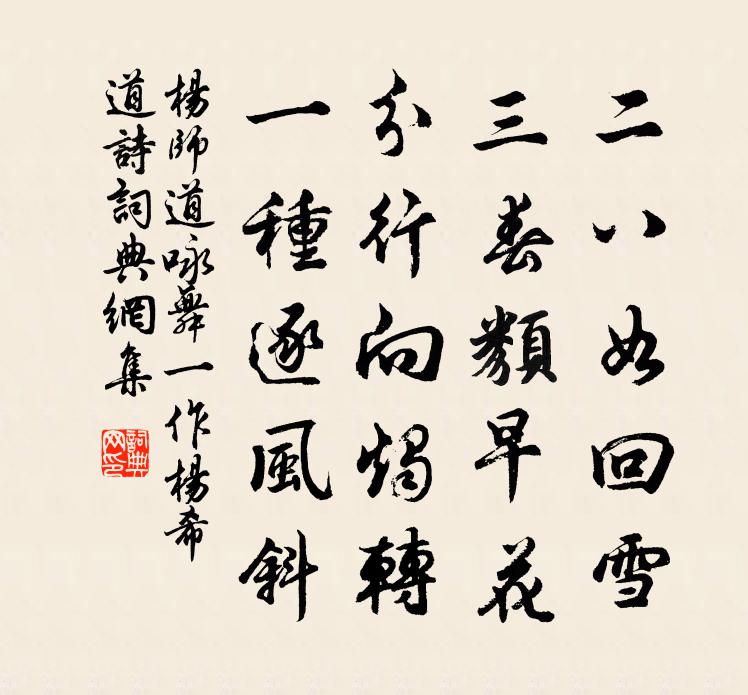 二八如回雪
三春類早花
分行向燭轉
一種逐風斜
楊師道咏舞一作楊希
道詩詞典網集
詞典网印